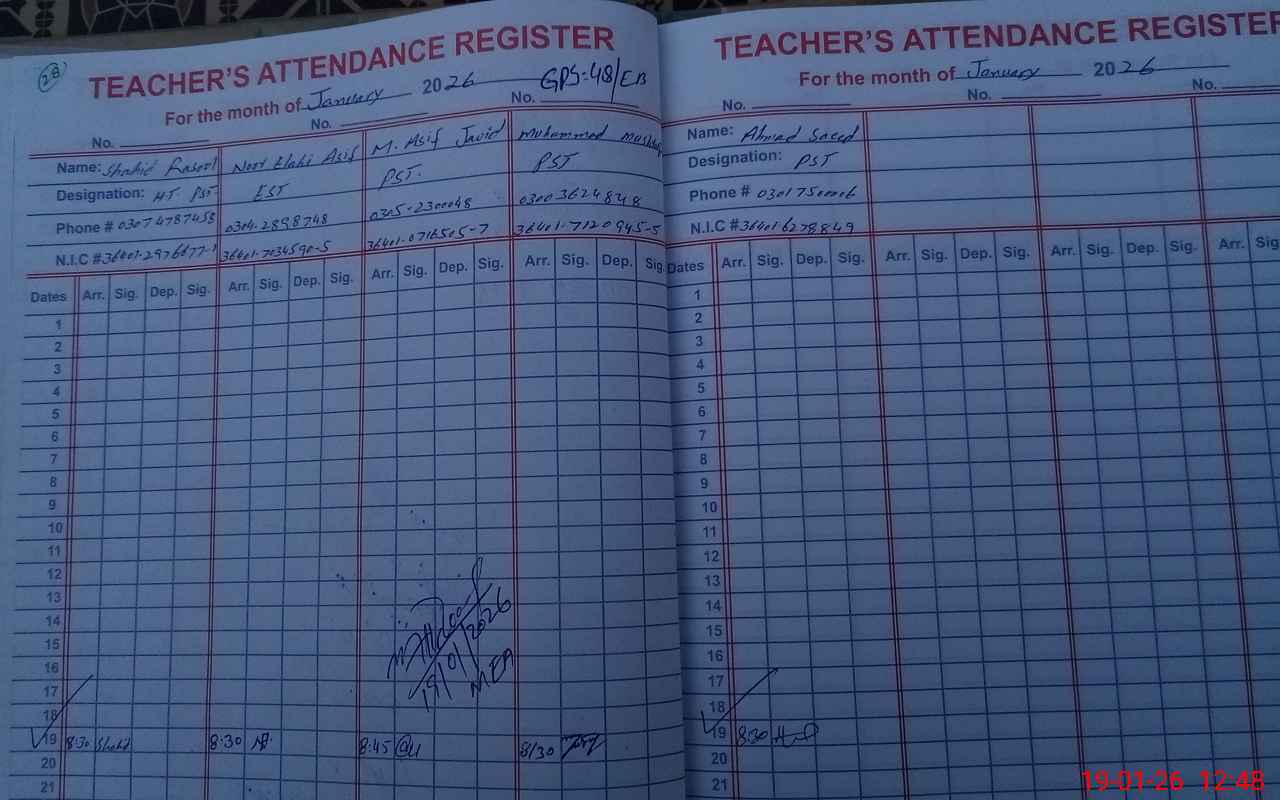 28
TEACHER'S ATTENDANCE REGISTER
For the month of January 2026 GPS-48/EB
No. No. No.
Name: Shahid Rasool Noor Elahi Asif M. Asif Javid Muhammad
Designation: H.T. PST EST PST. PST
Phone # 03074787458 0304-2898748 0305-2300048 03003624848
N.I.C # 36401-2976677-1 36401-7034590-5 36401-0716505-7 36401-7120945-5
Dates Arr. Sig. Dep. Sig. Arr. Sig. Dep. Sig. Arr. Sig. Dep. Sig. Arr. Sig. Dep. Sig.
1
2
3
4
5
6
7
8
9
10
11
12
13
14
15
16
17
18
19 8:30 Shahid 8:30 8:45 8/30
20
21
19/01/2026
MEA
TEACHER'S ATTENDANCE REGISTER
For the month of January 2026
No. No. No.
Name: Ahmad Saeed
Designation: PST
Phone # 03017500006
N.I.C # 364016278849
Dates Arr. Sig. Dep. Sig. Arr. Sig. Dep. Sig. Arr. Sig. Dep. Sig. Arr. Sig.
1
2
3
4
5
6
7
8
9
10
11
12
13
14
15
16
17
18
19 8:30
20
21
19-01-26 12:48